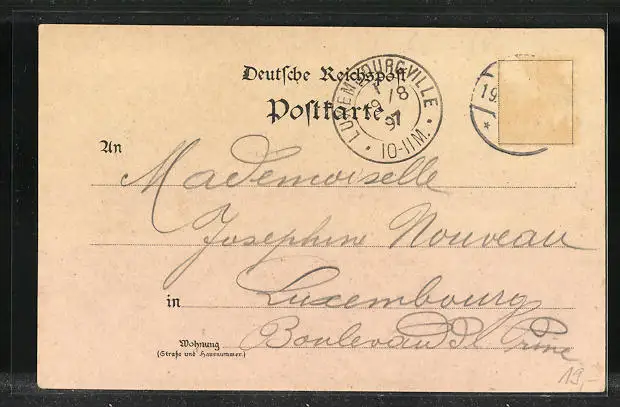 Deutsche Reichspost
Postkarte
LUXEMBOURG-VILLE
8
97
10-11M.
19
An
Mademoiselle
Josephine Nouveau
in Luxembourg
Wohnung
(Straße und Hausnummer.)
Boulevard
19,-